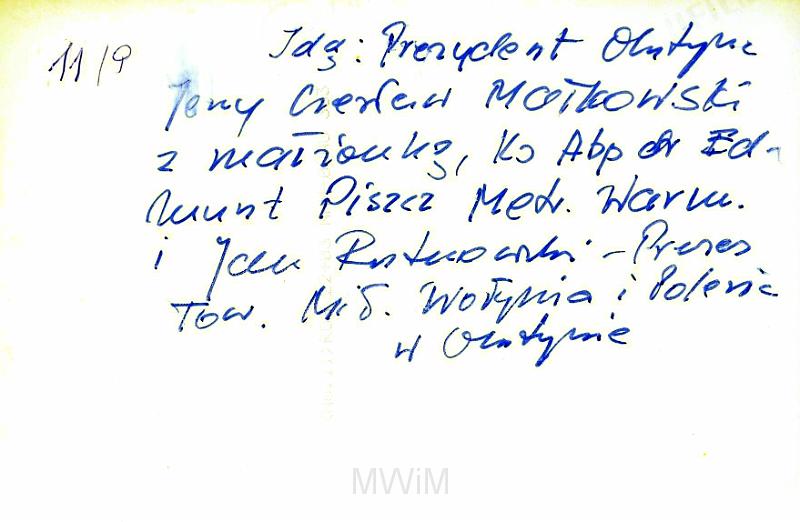 11/9
Idą: Prezydent Olsztyna
Jerzy Czesław Małkowski
z małżonką, Ks Abp dr Ed-
munt Piszcz Metr. Warm.
i Jan Rutkowski - Prezes
Tow. Mił. Wołynia i Polesia
w Olsztynie
MWiM